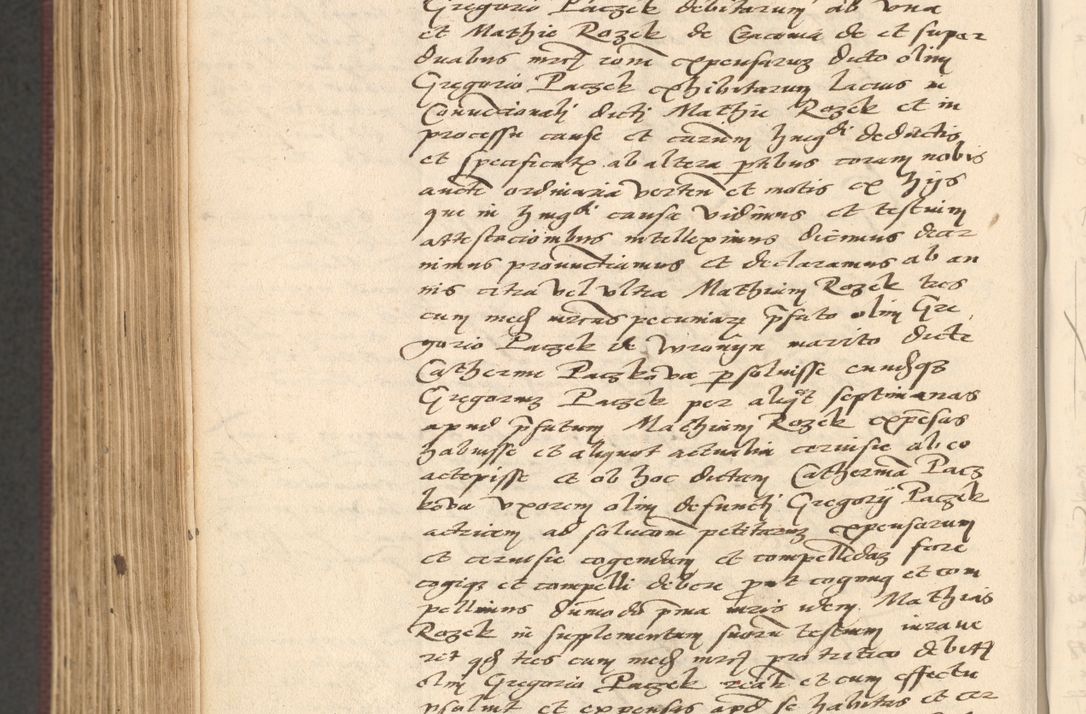 Gregorio Paczek debitarum ab vna
et Mathie Rozek de Cracovia de et super
duabus mrcis rone expensarum dicto olim
Gregorio Paczek exhibitarum lacius in
Convecionali dicti Mathie Rozek et in
processu cause et carum hmgdi deductis
et specificatis ab altera partibus coram nobis
aucte ordinaria verten et motis ex hijs
que in hmgdi causa vidimus et testium
attestacionibus intelleximus dicimus decer
nimus pronunctiamus et declaramus ab an
nis citra vel vltra Mathiam Rozek tres
cum med mrcas pecuniarum pfato olim Gre
gorio Paczek de marito dicte
Catherine Paczkova psoluisse eundemq3
Gregorium Paczek per aliqt septimanas
apud pfatum Mathiam Rozek expesas
habuisse et aliquot actualia ceruisie ab eo
accepisse et ob hoc dictam Catherina Pacz
kova vxorem olim defuncti Gregorij Paczek
actricem ad solucom petitarum expensarum
et ceruisie cogendam et compellendam fore
cogiq3 et compelli debere put cogimq et com
pellimus dumodo pma iuris idem Mathias
Rozek in suplementum suoru testium iurave
rit qd tres cum med mrcis pro tritico debitt
olim Gregorio Paczek realr et cum effectu
psoluit et expensas apud se habitas et cer